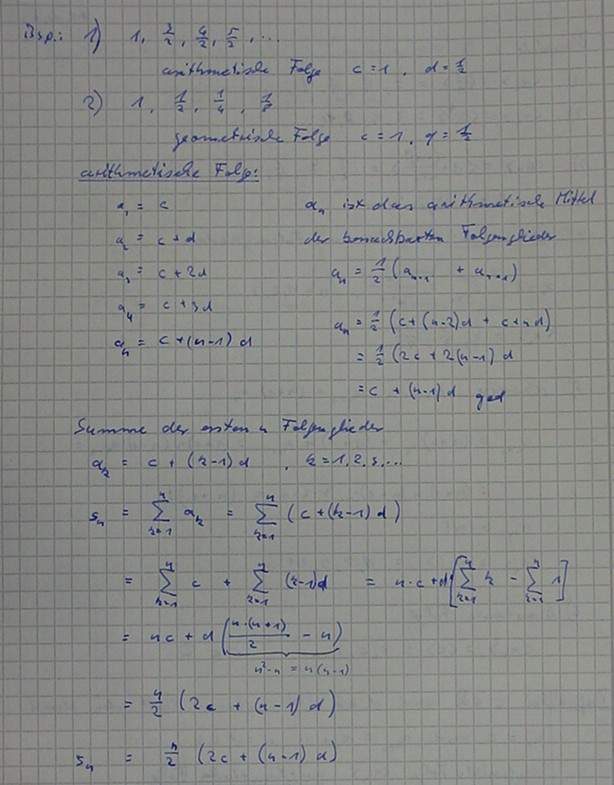 Bsp.: 1) 1, 3/2, 4/2, 5/2, ...
arithmetische Folge c = 1, d = 1/2
2) 1, 1/2, 1/4, 1/8
geometrische Folge c = 1, q = 1/2
arithmetische Folge:
a₁ = c
a₂ = c + d
a₃ = c + 2d
a₄ = c + 3d
aₙ = c + (n-1) d
aₙ ist das arithmetische Mittel
der benachbarten Folgenglieder
aₙ = 1/2 (aₙ₋₁ + aₙ₊₁)
aₙ = 1/2 (c + (n-2)d + c + nd)
= 1/2 (2c + 2(n-1) d
= c + (n-1) d qed
Summe der ersten n Folgenglieder
aₖ = c + (k-1) d , k = 1, 2, 3, ...
sₙ = ∑ₖ₌₁ⁿ aₖ = ∑ₖ₌₁ⁿ (c + (k-1) d)
= ∑ₖ₌₁ⁿ c + ∑ₖ₌₁ⁿ (k-1)d = n·c + d [∑ₖ₌₁ⁿ k - ∑ₖ₌₁ⁿ 1]
= nc + d (n·(n+1)/2 - n)
n²-n = n(n-1)
= n/2 (2c + (n-1) d)
sₙ = n/2 (2c + (n-1) d)